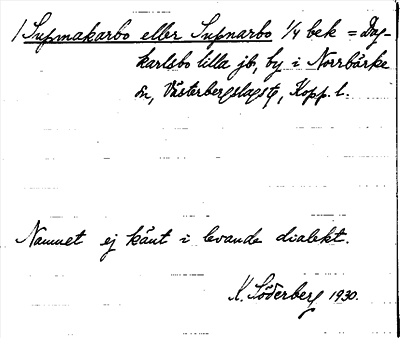 / Supmakarbo eller Supnarbo 1/4 bek = Dag-
karlsbo lilla jb, by i Norrbärke
sn, Västerbergslags tg, Kopp. l.
Namnet ej känt i levande dialekt.
K. Söderberg 1930.